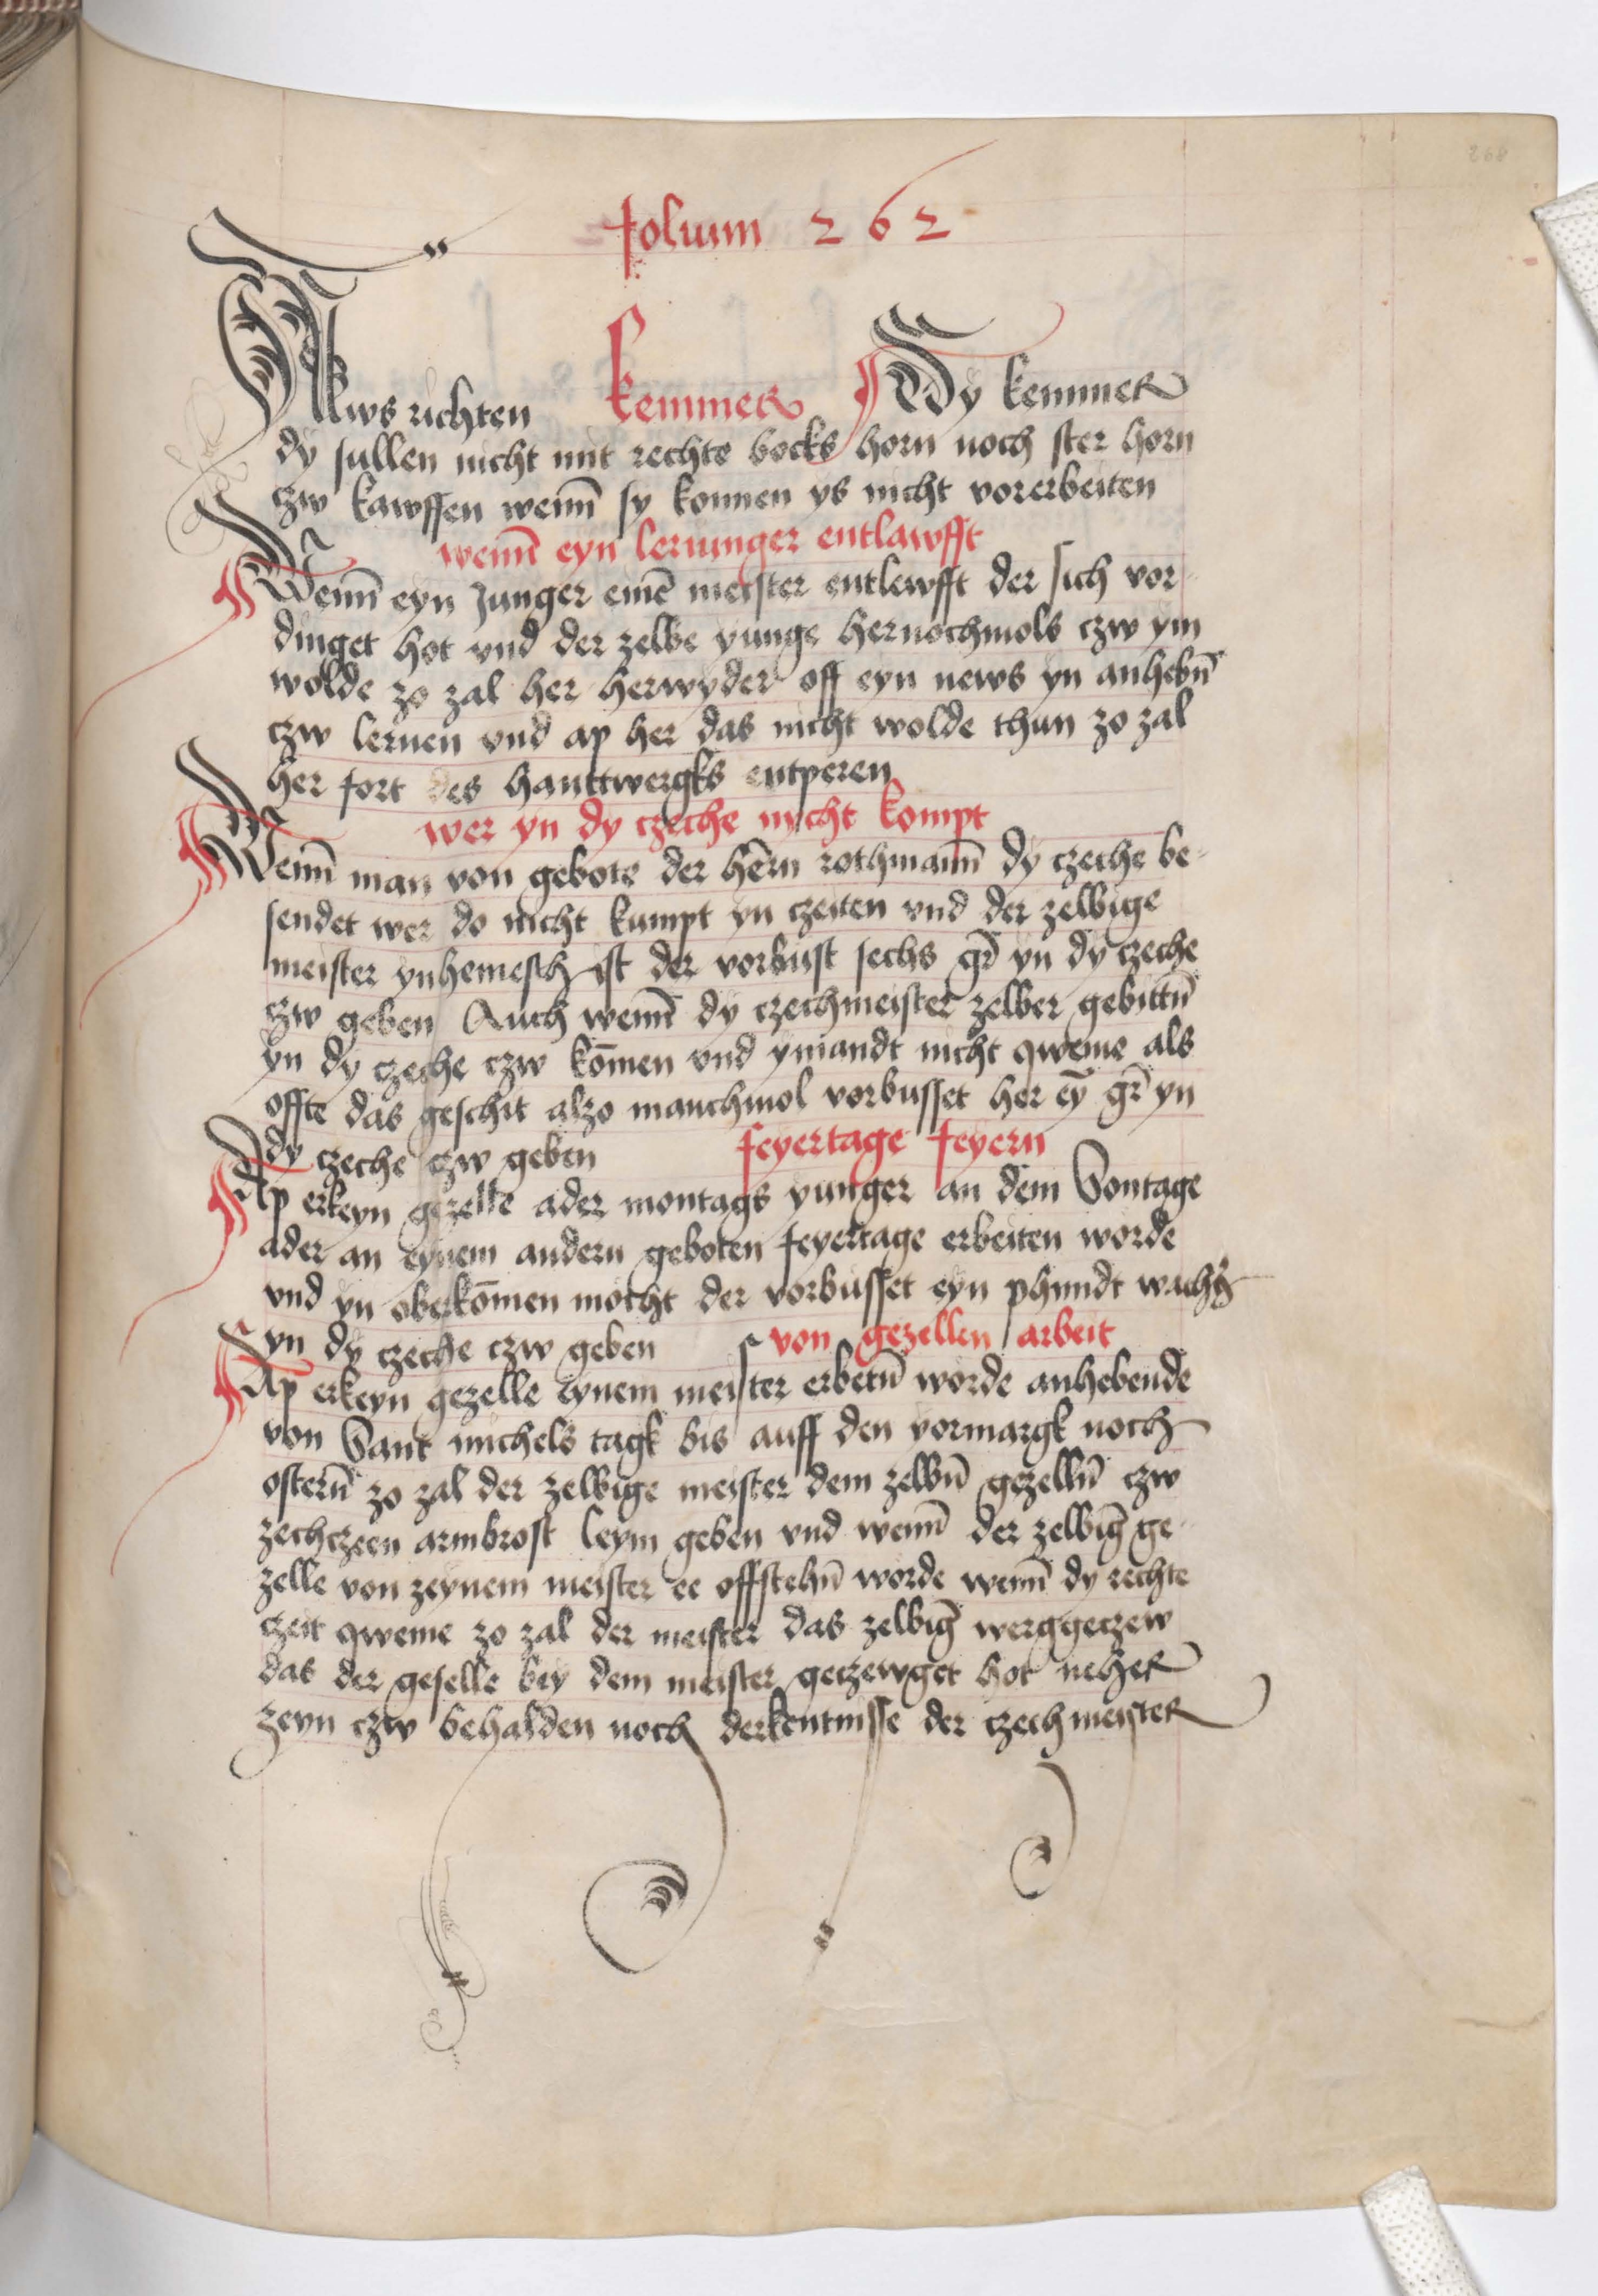 268
folium 262
Aws richten kemmer Dy kemmer
dy sullen nicht mit rechte bocks horn noch ster horn
czw kawffen wenn̄ sy konnen ys nicht vorerbeiten
wenn̄ eyn leriunger entlawfft
Wenn̄ eyn Junger einē meister entlewfft der sich vor
dinget hot vnd der zelbe yunge hernochmols czw ym
wolde zo zal her herwyder off eyn news yn anhebn̄
czw lernen vnd ap her das nicht wolde thun zo zal
her fort des hanttwergks entperen
wer yn dy czeche nycht kompt
Wenn̄ man von gebote der hērn rothmann̄ dy czeche be-
sendet wer do nicht kumpt yn czeiten vnd der zelbige
meister ynhemesch ist der vorbust sechs gr̄ yn dy czeche
czw geben Auch wenn̄ dy czechmeister zelber gebittn̄
yn dy czeche czw kōmen vnd ymandt nicht qweme als
offte das geschit alzo manchmol vorbusset her eȳ gr̄ yn
dy czeche czw geben feyertage feyern
Ap erkeyn gezelle ader montags yunger an dem Sontage
ader an eynem andern geboten feyertage erbeiten worde
vnd yn oberkōmen mocht der vorbusset eyn phundt wachs
yn dy czeche czw geben von gezellen arbeit
Ap erkeyn gezelle eynem meister erbetn̄ worde anhebende
von Sant michels tagk bis auff den yormargk noch
ostern̄ zo zal der zelbige meister dem zelbn̄ gezelln̄ czw
zechczeen armbrost leym geben vnd wenn̄ der zelbiḡ ge-
zelle von zeynem meister ee offstehn̄ worde wenn̄ dy rechte
czeit qweme zo zal der meister das zelbiḡ werggeczew
das der geselle bey dem meister geczewget hot neher
zeyn czw behalden noch derkentnisse der czechmeister